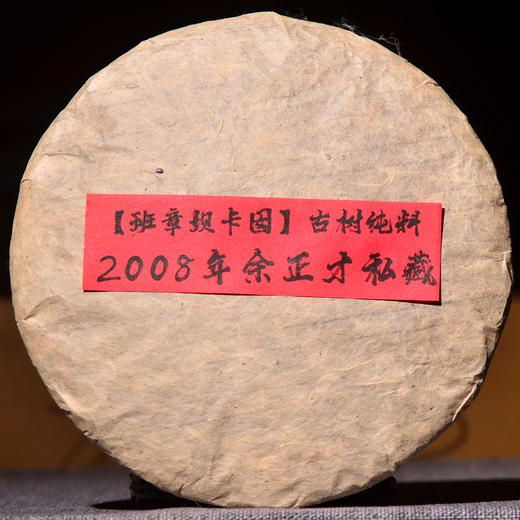 【班章坝卡囡】古树纯料
2008年余正才私藏